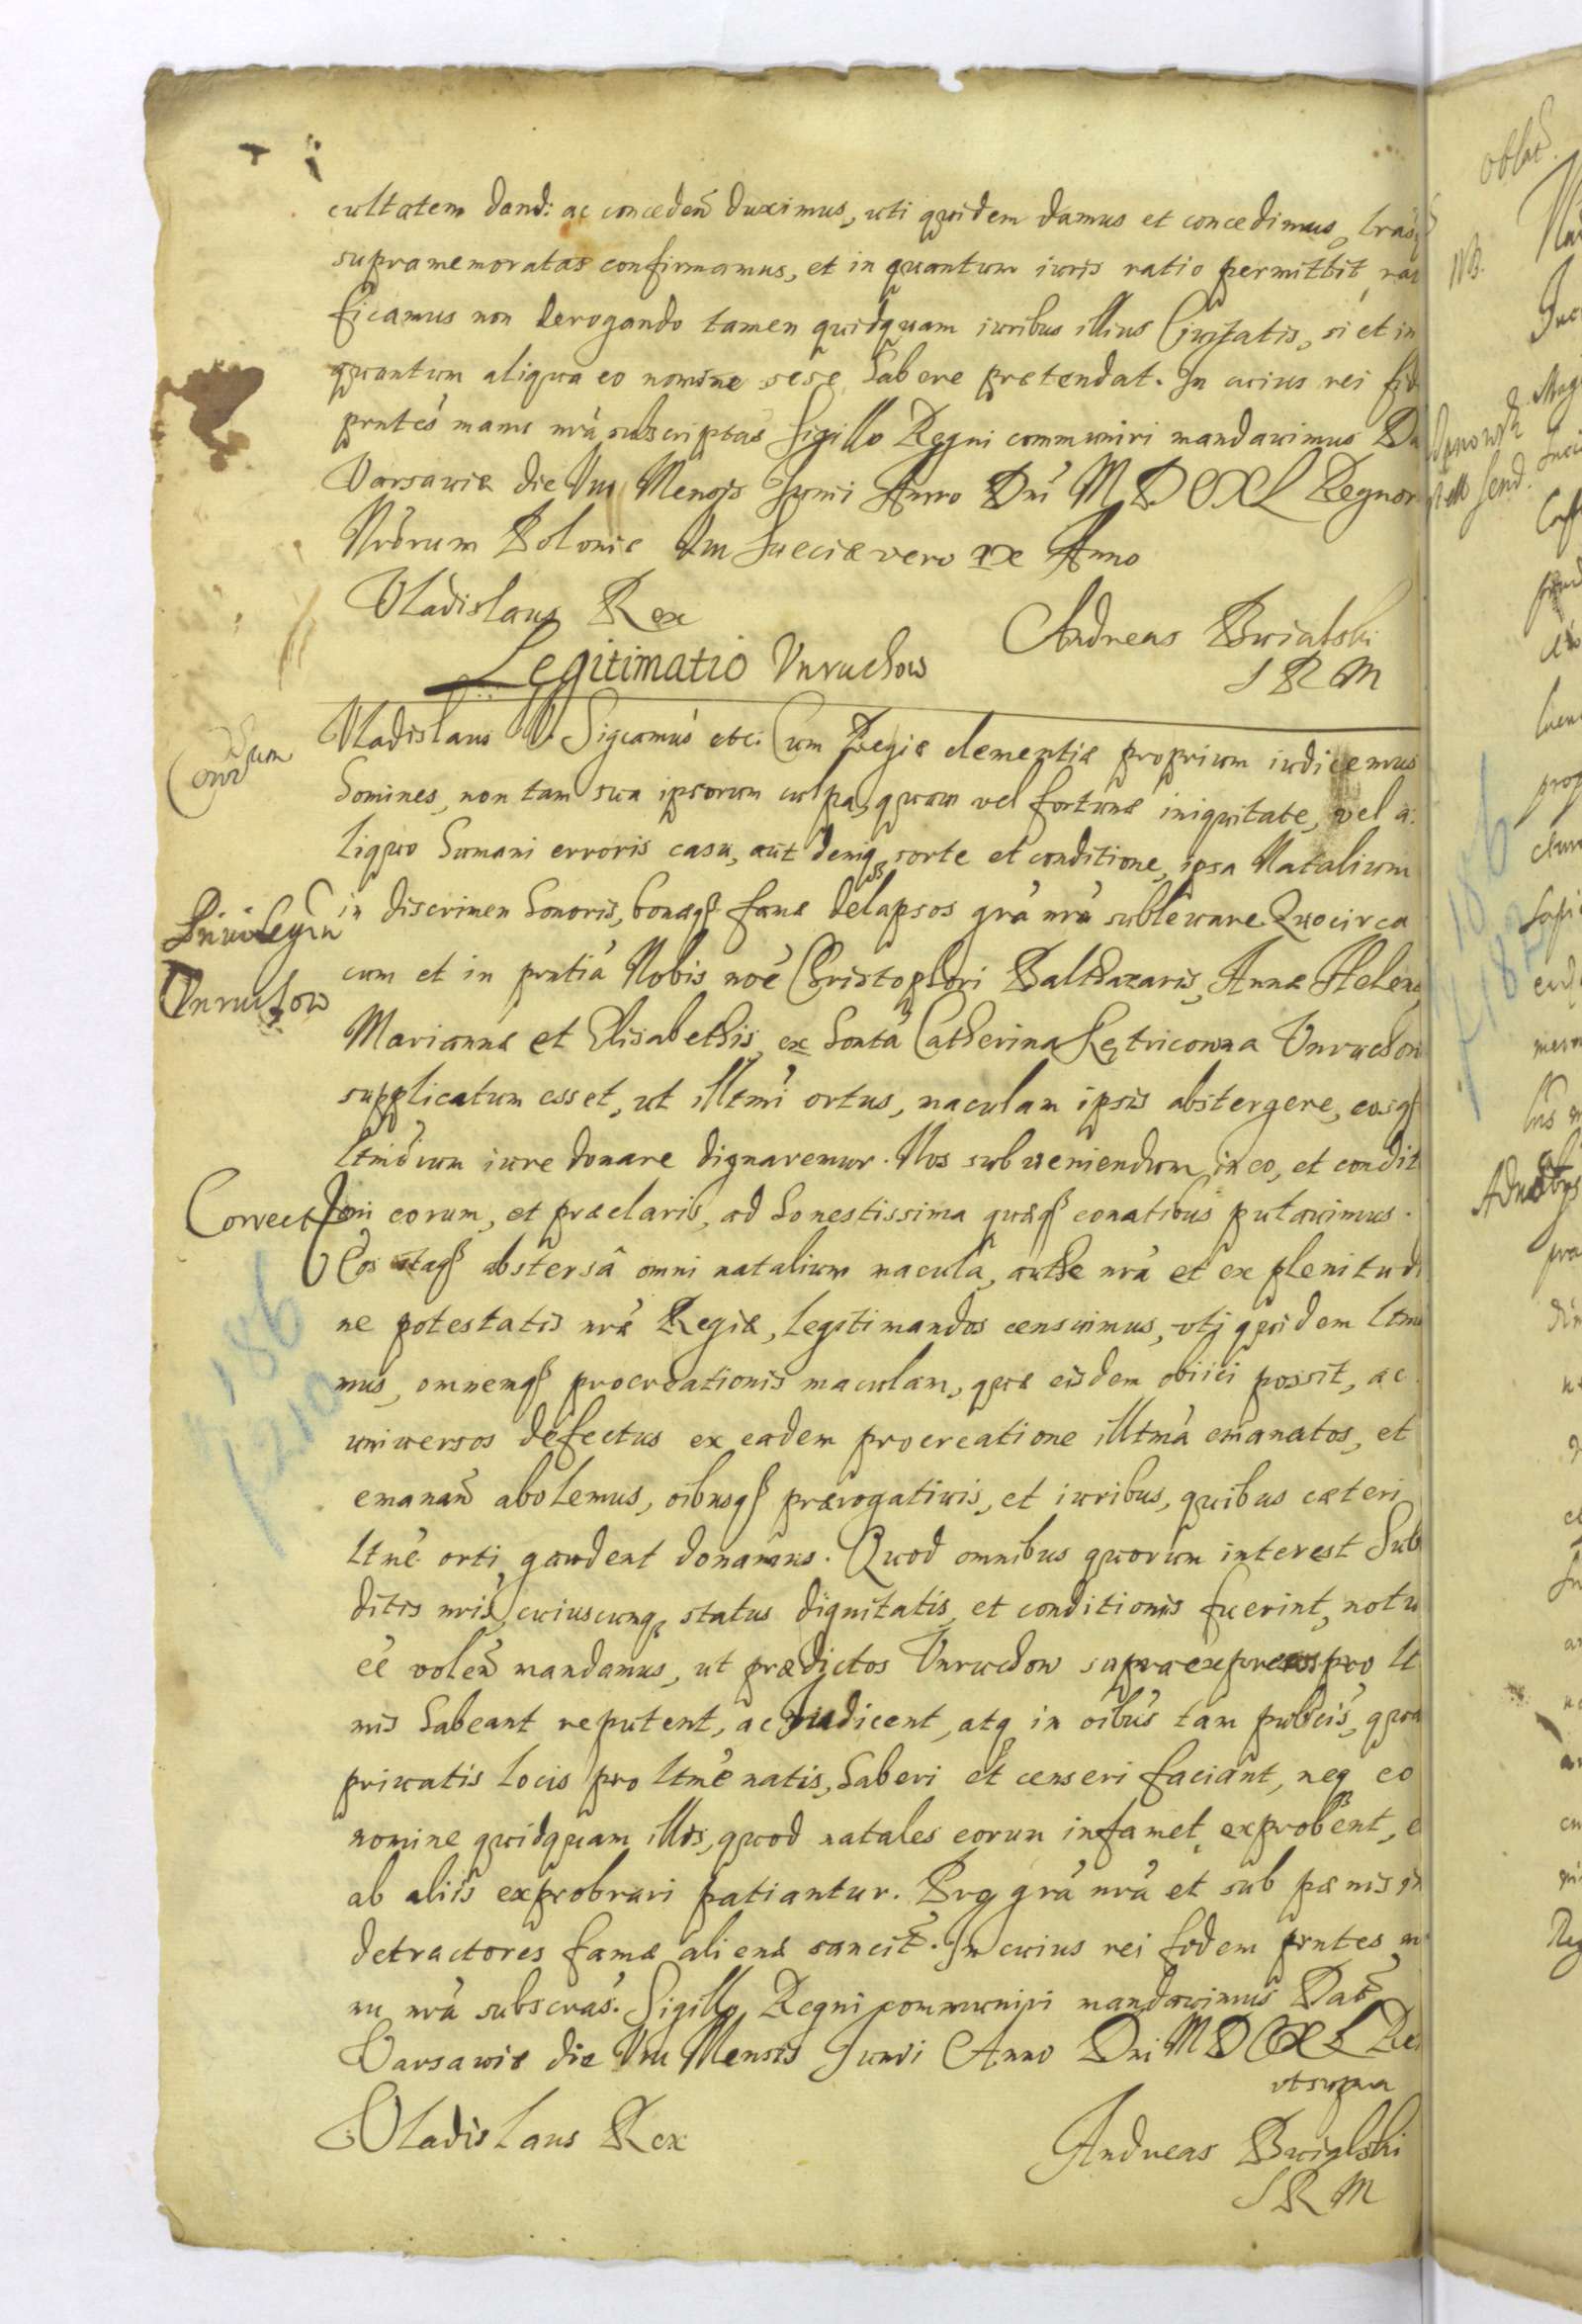 cultatem dand: ac conceden̄ duximus, uti quidem damus et concedimus, lrasq
supramemoratas confirmamus, et in quantum iuris ratio permittit, rati
ficamus non derogando tamen quidquam iuribus illius Ciuitatis, si et in
quantum aliqua eo nomine sese habere prætendat. In cuius rei fid
prntes manu nrā subscriptas Sigillo Regni communiri mandauimus Da
Varsauiæ die VIII Mensis Junii Anno Dni MDCXL Regnor
Nrorum Poloniæ VIII Sueciæ vero IX Anno
Vladislaus Rex
Andreas
S R M
Legitimatio Vnruchow
Vladislaus IV. Sigcamus etc. Cum Regiæ clementiæ proprium iudicemus
homines, non tam sua ipsorum culpa, quam vel fortunæ iniquitate, vel a:
liquo humani erroris casu, aut deniq sorte et conditione, ipsa Natalium
Privilegiu
in discrimen honoris, bonæq famæ delapsos grā nrā subleuare Quocirca
Vnruchow
cum et in prntiā Nobis noē Christophori Balthazaris, Annæ Helenæ
Mariannæ et Elisabethis, ex hontā Catherina Vnruchow
supplicatum esset, ut illtmi ortus, maculam ipsis abstergere, eosq
ltmorum iure donare dignaremur. Nos subueniendum, in eo, et condit
Correct
ioni eorum, et præclaris, ad honestissima quæq conatibus putauimus.
Eos itaq abstersâ omni natalium maculâ, authe nrā et ex plenitudi
186
ne potestatis nræ Regiæ, legitimandos censuimus, vtj quidem ltma
mus, omnemq procreationis maculam, quæ eisdem obiici possit, ac
1210
uniuersos defectus ex eadem procreatione illtmā emanatos, et
emanan̄ abolemus, oibusq prærogatiuis, et iuribus, quibus cæteri
ltmē orti, gaudent donamus. Quod omnibus quorum interest Sub
ditis nris, cuiuscunq status dignitatis, et conditionis fuerint, notu
eē volen̄ mandamus, ut prædictos Vnruchow supraexpressos pro lt
mis habeant reputent, ac iudicent, atq in oibus tam publcis, quam
priuatis locis pro ltmē natis, haberi et censeri faciant, neq eo
nomine quidquam illis, quod natales eorum infamet, exprobrent, e
ab aliis exprobrari patiantur. Pro grā nrā et sub pænis in
detractores famæ alienæ sancit. In cuius rei fidem prntes m
nu nrā subscras. Sigillo Regni communiri mandauimus Dat
Varsauiæ die VIII Mensis Junii Anno Dni MDCXL Re
vt supra
Vladislaus Rex
Andreas
S R M